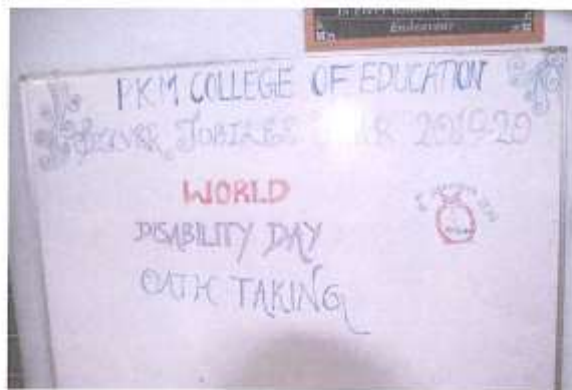 Endeavour
PKM COLLEGE OF EDUCATION
SILVER JUBILEE YEAR 2019-20
WORLD
DISABILITY DAY
OATH TAKING